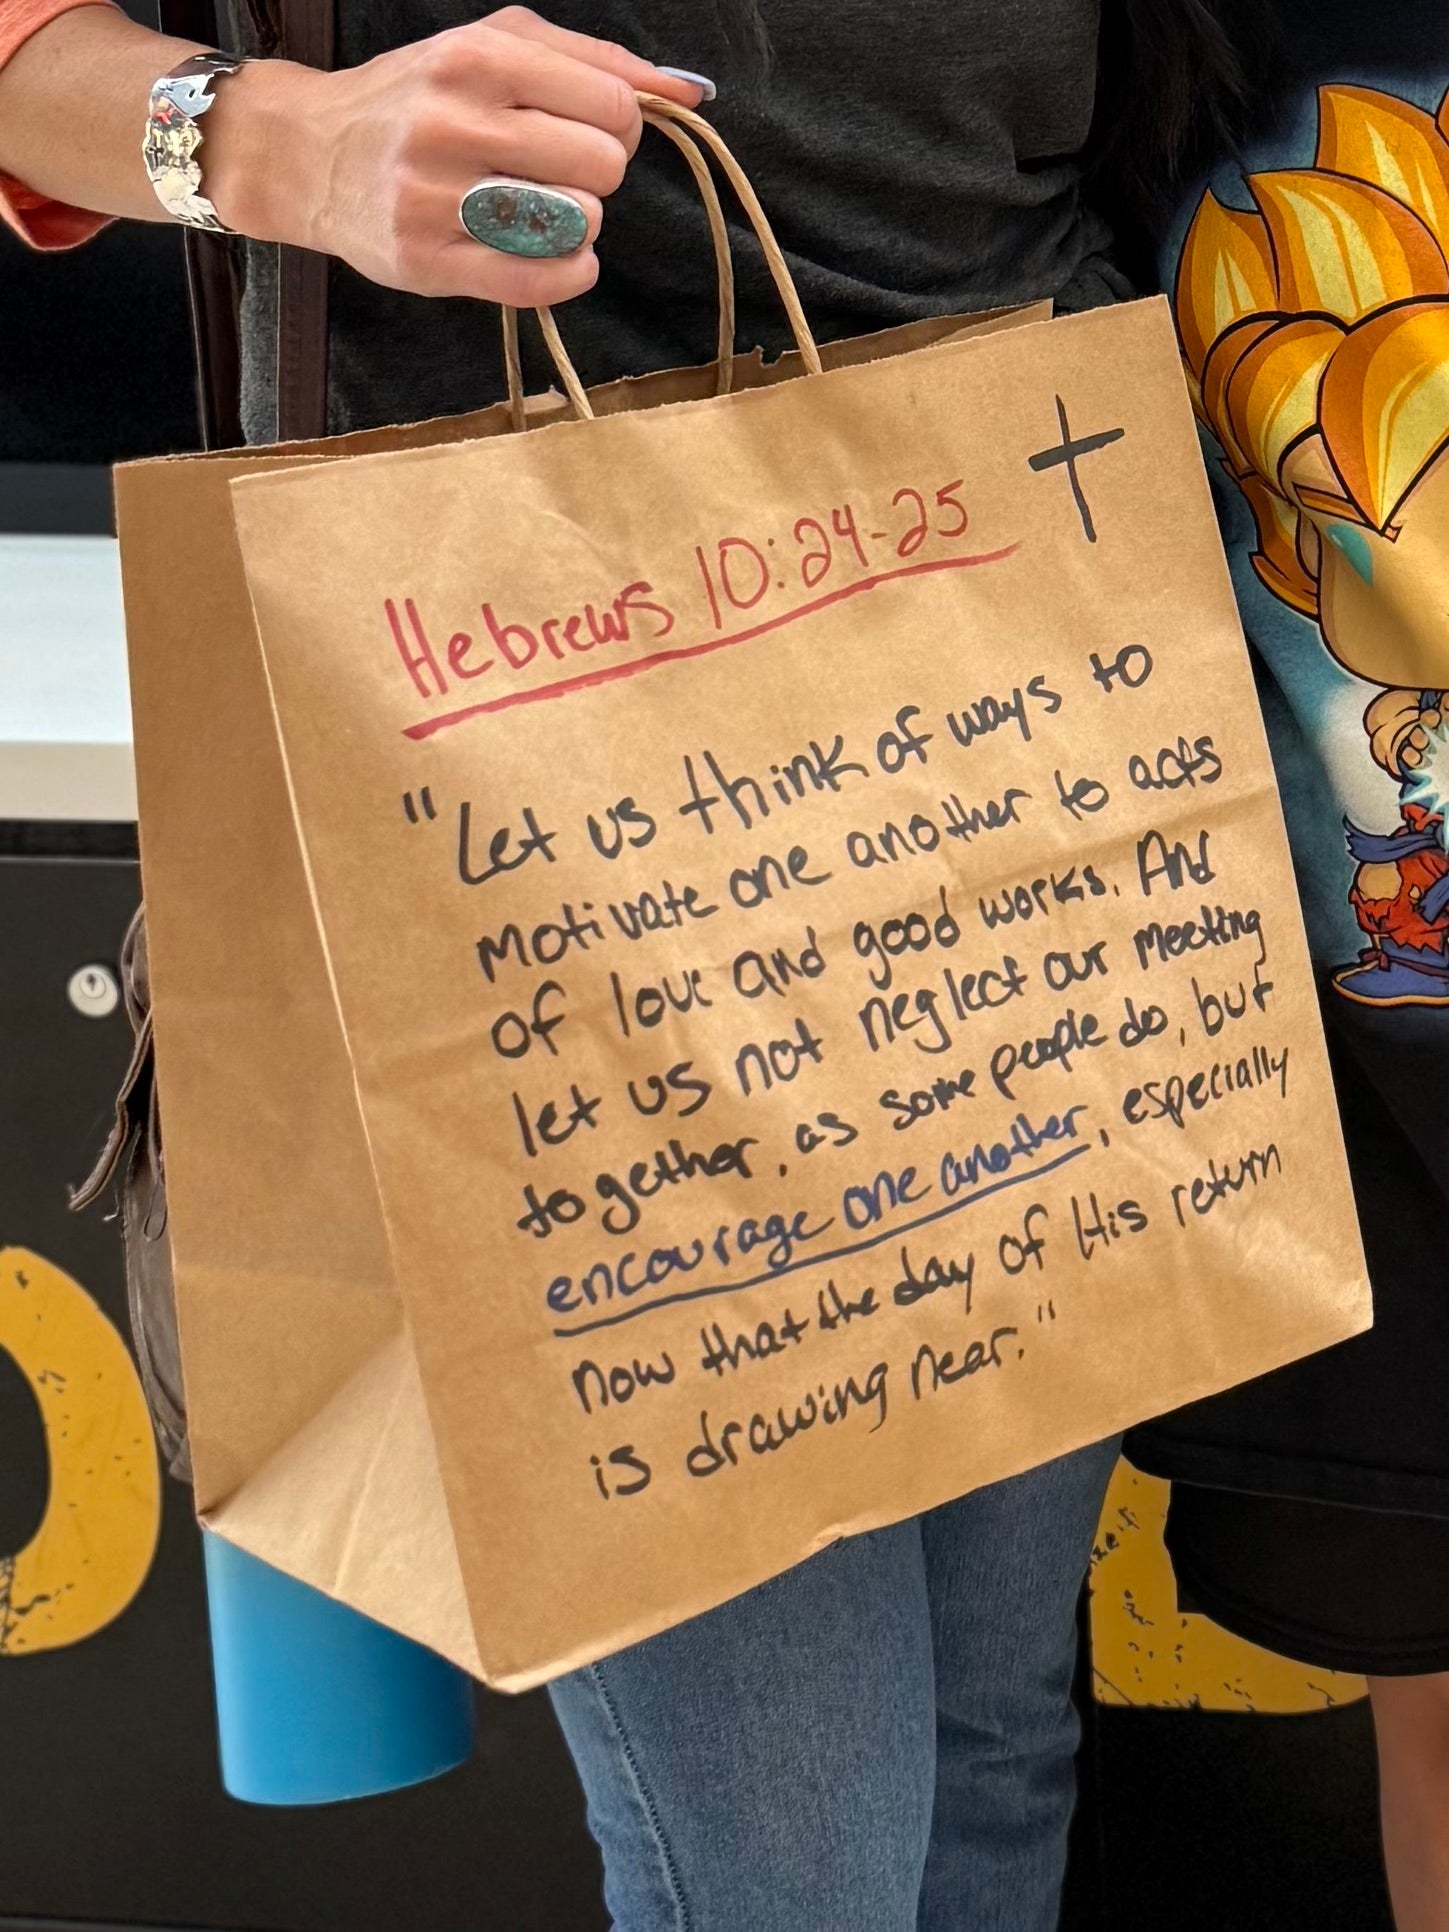 Hebrews 10:24-25
"Let us think of ways to
motivate one another to acts
of love and good works. And
let us not neglect our meeting
together, as some people do, but
encourage one another, especially
now that the day of His return
is drawing near."